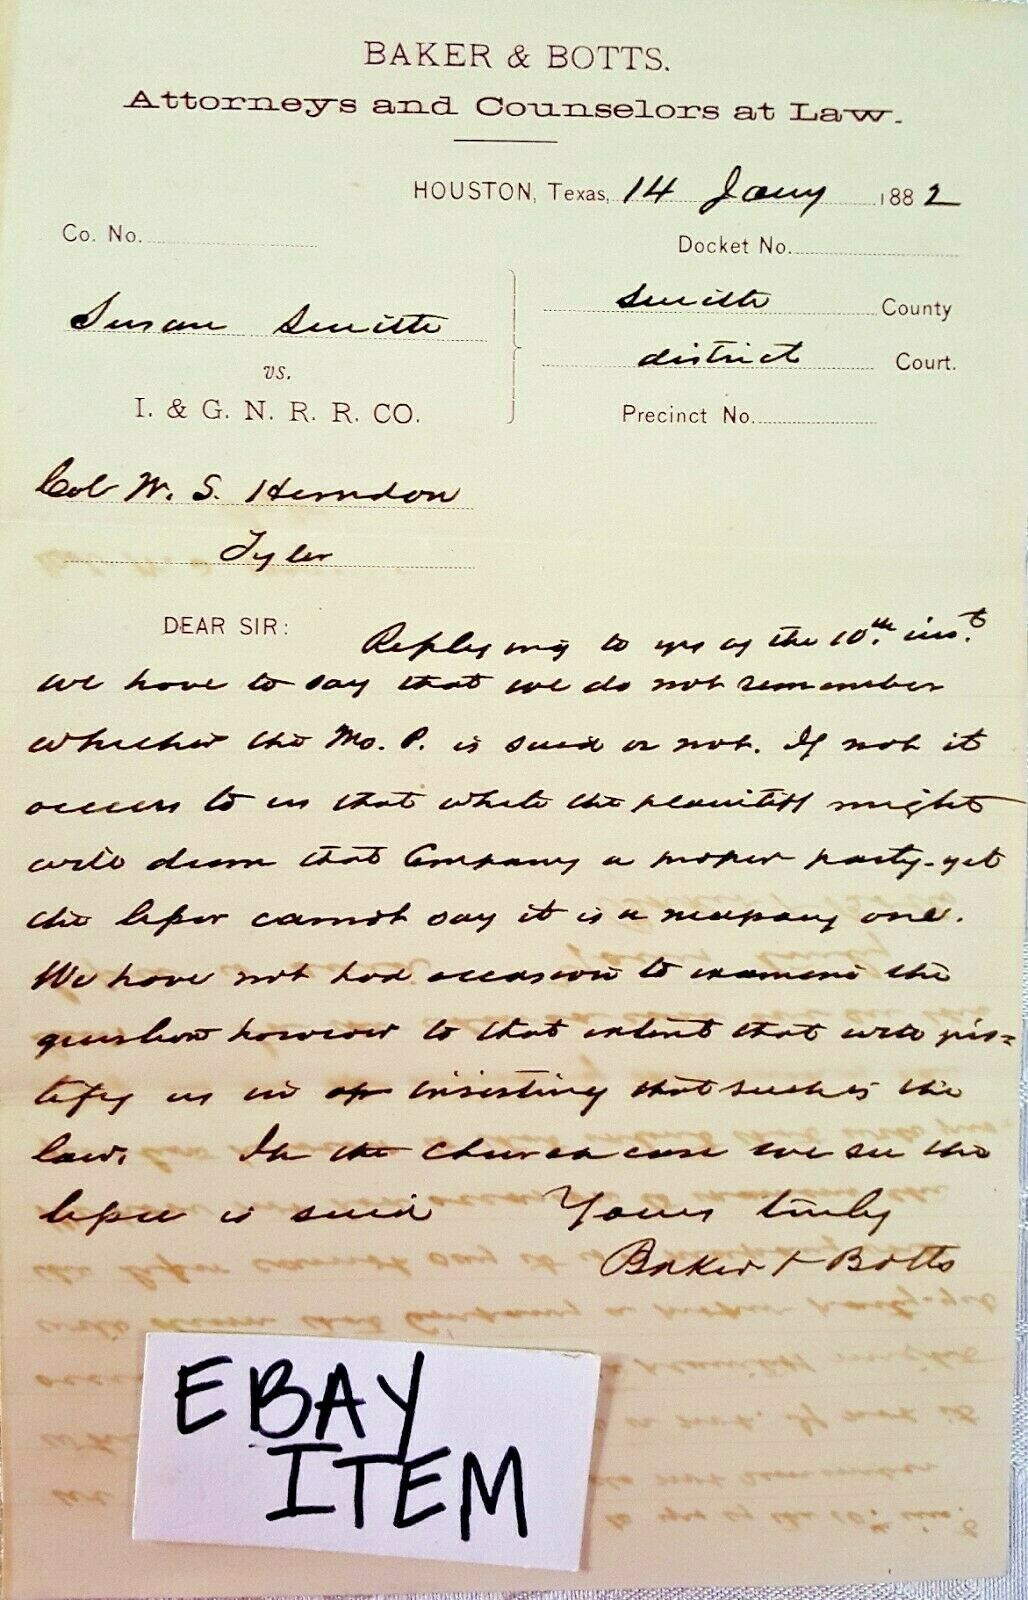 BAKER & BOTTS.
Attorneys and Counselors at Law.
HOUSTON, Texas, 14 Jany 1882
Co. No.
Docket No.
Susan Smith
Smith County
vs.
district Court.
I. & G. N. R. R. CO.
Precinct No.
Col W. S. Herndon
Tyler
DEAR SIR: Replying to yrs of the 10th inst.
we have to say that we do not remember
whether the Mo. P. is sued or not. If not it
occurs to us that while the plaintiff might
well deem that Company a proper party-yet
the lessor cannot say it is a necessary one.
We have not had occasion to examine the
question however to that extent that will jus=
tify us in insisting that such is the
law. In the case we see the
lessee is sued Yours truly
Baker & Botts
EBAY
ITEM